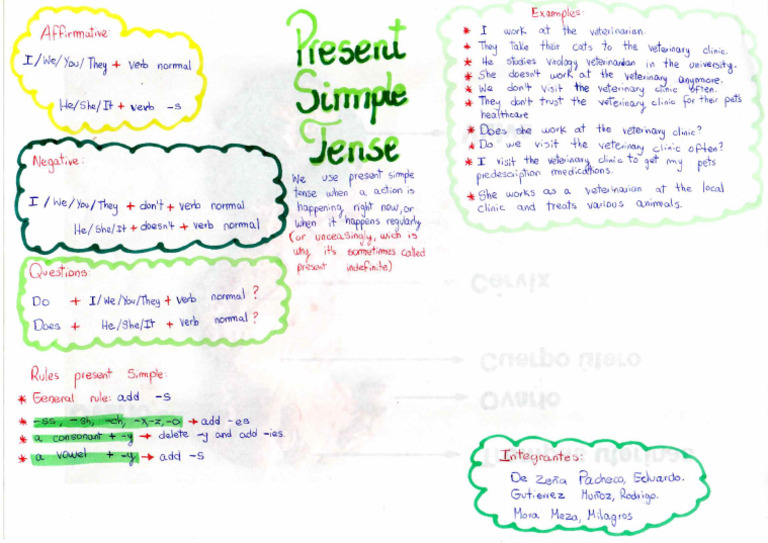 Present
Simple
Tense
Affirmative:
I/We/You/They + verb normal
He/She/It + verb -s
Negative:
I / We/You/They + don't + verb normal
He/She/It + doesn't + verb normal
Questions:
Do + I/We/You/They + verb normal ?
Does + He/She/It + verb normal ?
Rules present Simple:
* General rule: add -s
* -ss, -sh, -ch, -x-z, -o → add -es
* a consonant + -y → delete -y and add -ies
* a vowel + -y → add -s
We use present simple
tense when a action is
happening right now, or
when it happens regularly
(or unceasingly, wich is
why it's sometimes called
present indefinite)
Examples:
* I work at the veterinarian.
* They take their cats to the veterinary clinic.
* He studies virology veterinarian in the university.
* She doesn't work at the veterinary anymore.
* We don't visit the veterinary clinic often.
* They don't trust the veterinary clinic for their pets
healthcare
* Does she work at the veterinary clinic?
* Do we visit the veterinary clinic often?
* I visit the veterinary clinic to get my pets
predescription medications.
* She works as a veterinarian at the local
clinic and treats various animals.
Cervix
Cuerpo útero
Ovario
Integrantes:
De Zeña Pacheco, Eduardo.
Gutierrez Muñoz, Rodrigo.
Mora Meza, Milagros